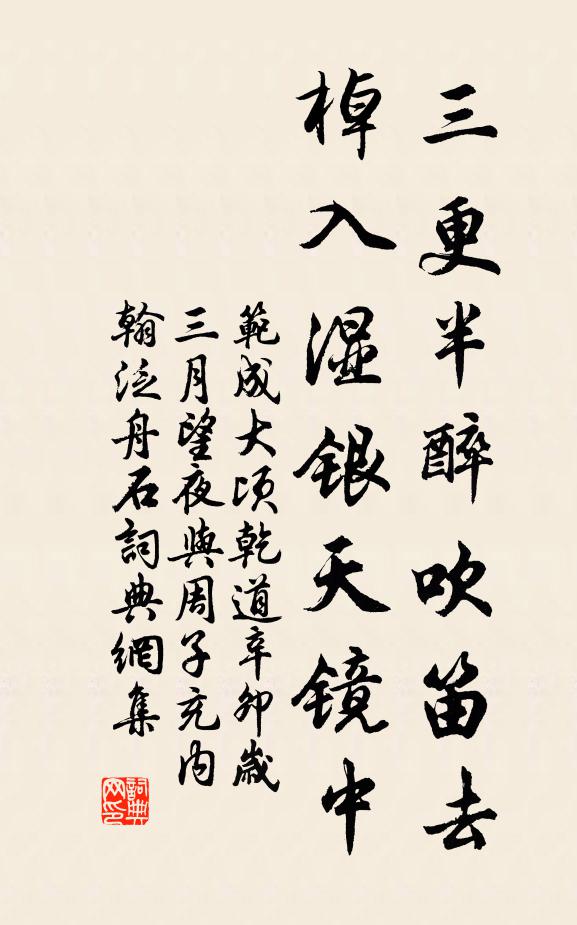 三更半醉吹笛去
棹入湿银天镜中
範成大頃乾道辛卯歲
三月望夜與周子充内
翰泛舟石詞典網集
詞典網印